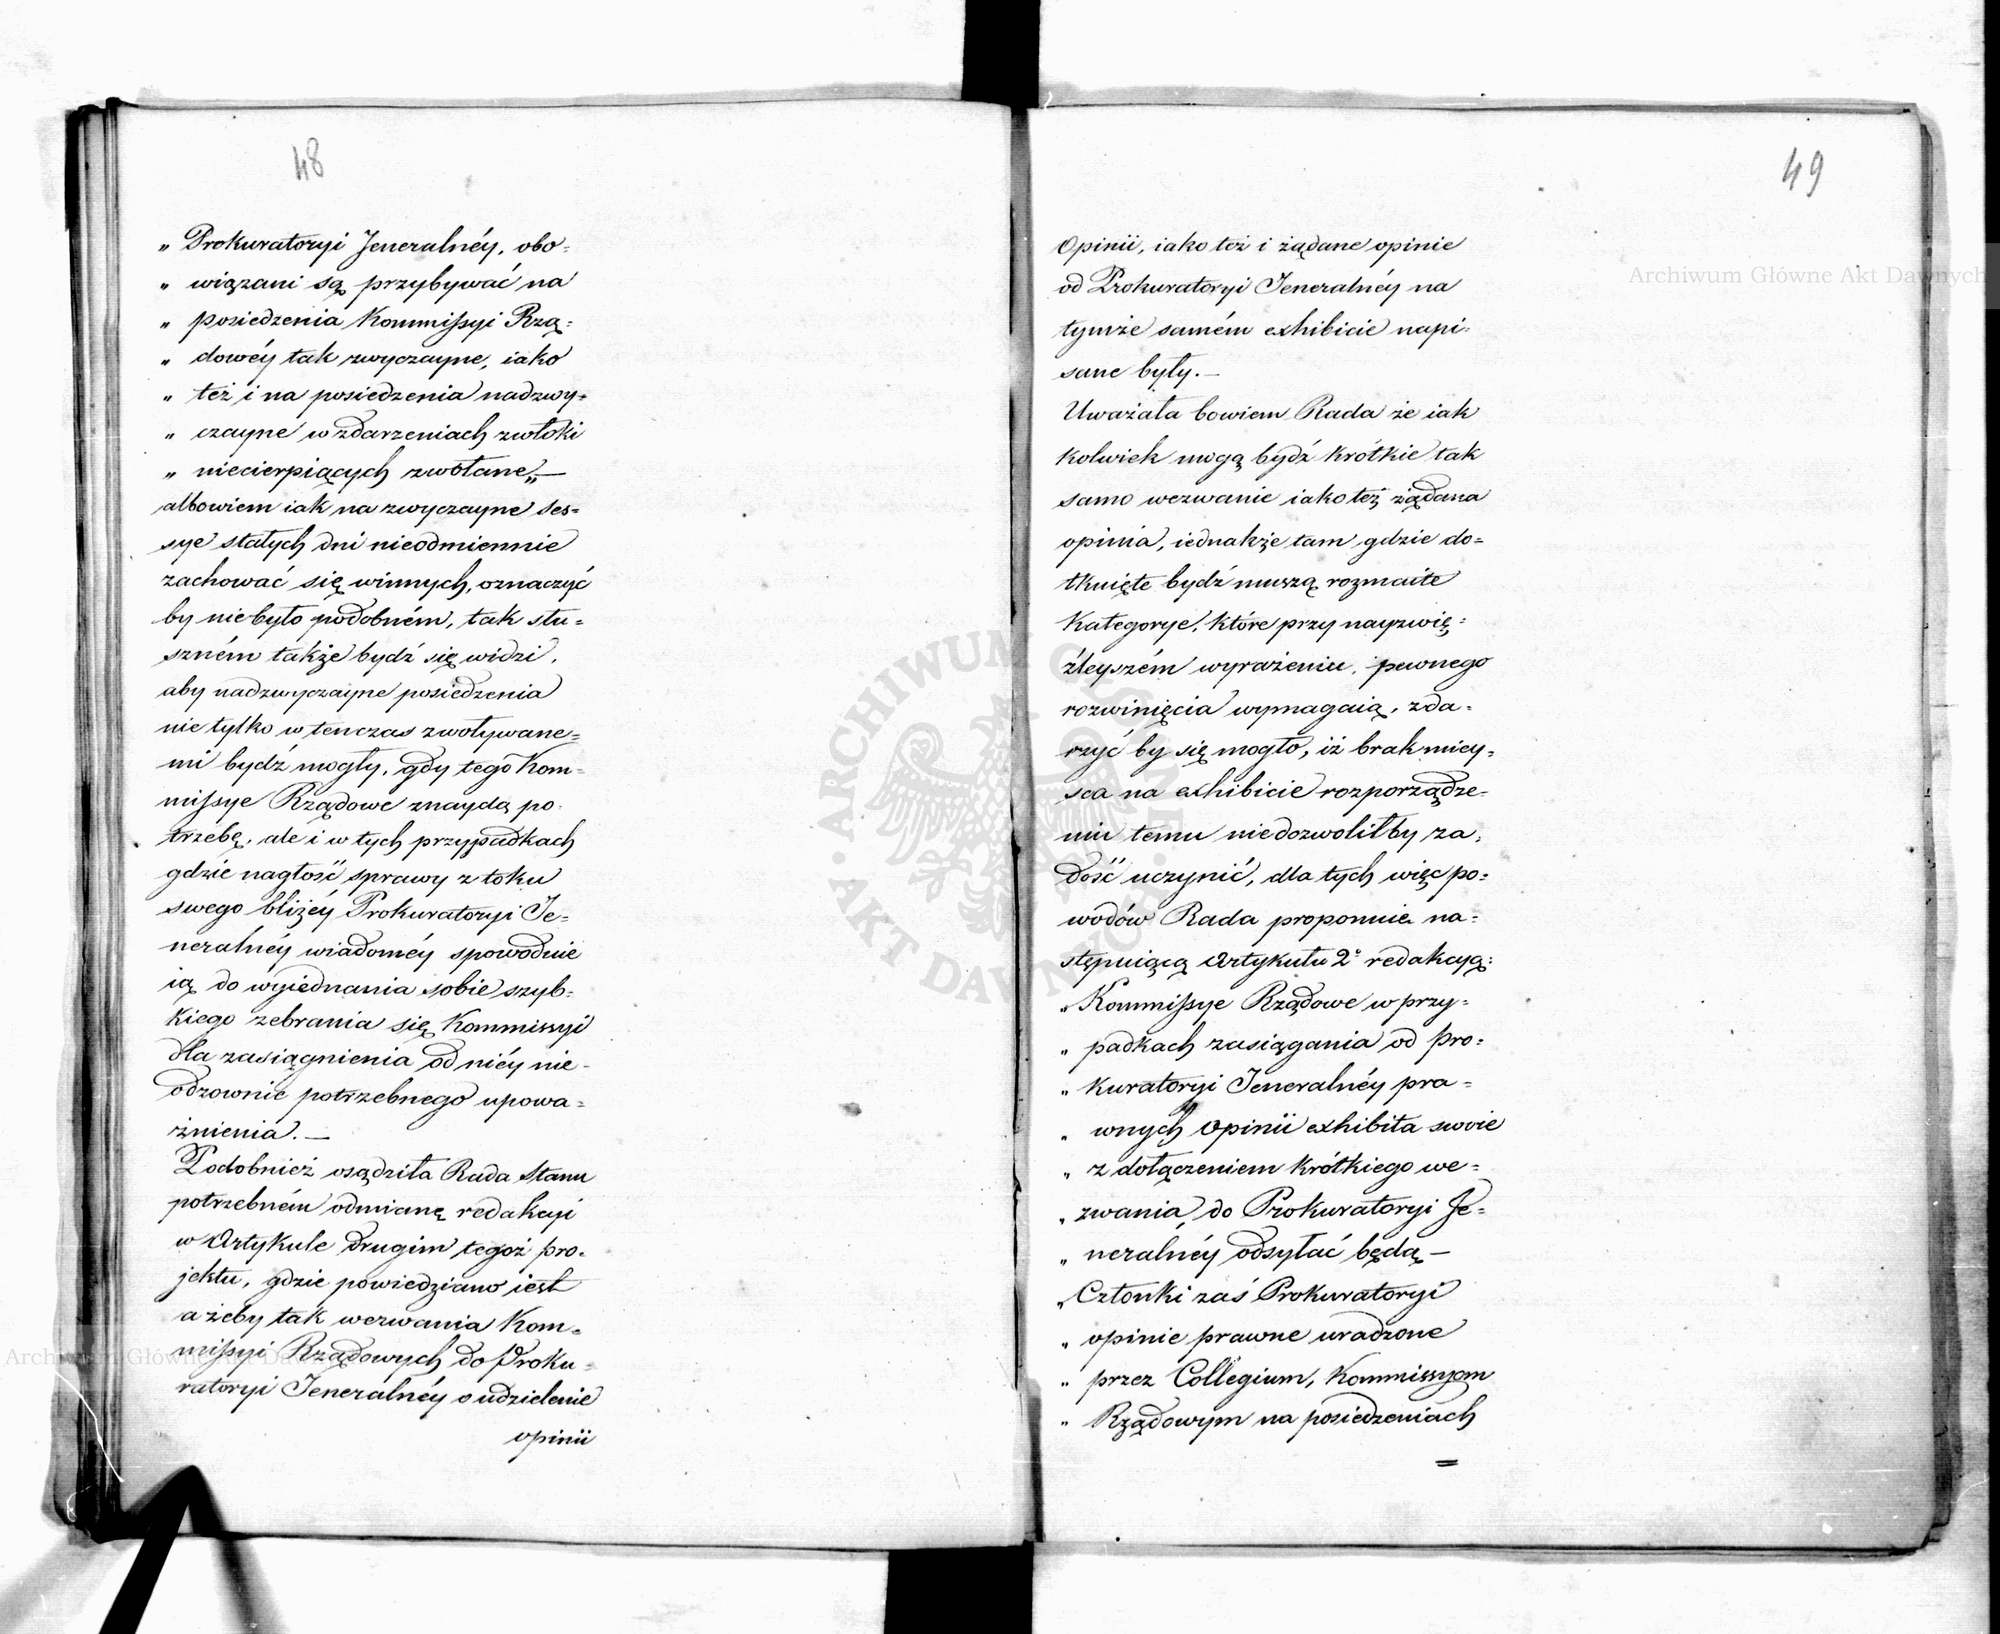 48
„ Prokuratoryi Jeneralnéy, obo=
„ wiązani są przybywać na
„ posiedzenia Kommissyi Rzą=
„ dowéy tak zwyczayne, iako
„ też i na posiedzenia nadzwy=
„ czayne w zdarzeniach zwłoki
„ niecierpiących zwołane„ —
albowiem iak na zwyczayne ses=
sye stałych dni nieodmiennie
zachować się winnych, oznaczyć
by niebyło podobném, tak słu=
szném także bydź się widzi,
aby nadzwyczayne posiedzenia
nie tylko w tenczas zwoływane=
mi bydź mogły, gdy tego Kom=
missye Rządowe znaydą po=
trzebę, ale i w tych przypadkach
gdzie nagłość sprawy z toku
swego bliżéy Prokuratoryi Je=
neralnéy wiadoméy spowoduie
ią do wyiednania sobie szyb=
kiego zebrania się Kommissyi
dla zasiągnienia od niéy nie=
odzownie potrzebnego upowa=
żnienia. —
Podobnież osądziła Rada Stanu
potrzebném odmianę redakcyi
w Artykule drugim tegoż pro=
jektu, gdzie powiedziano iest
ażeby tak wezwania Kom=
missyi Rządowych do Proku=
ratoryi Jeneralnéy o udzielenie
opinii
49
Opinii, iako też i żądane opinie
od Prokuratoryi Jeneralnéy na
tymże samém exhibicie napi=
sane były. —
Uważała bowiem Rada że iak
kolwiek mogą bydź krótkie tak
samo wezwanie iako też żądana
opinia, iednakże tam gdzie do=
tknięte bydź muszą rozmaite
Kategorye, które przy nayzwię=
źleyszém wyrażeniu, pewnego
rozwinięcia wymagaią, zda=
rzyć by się mogło, iż brak miey=
sca na exhibicie rozporządze=
niu temu niedozwolił by za=
dość uczynić, dla tych więc po=
wodów Rada proponuie na=
stępuiącą Artykułu 2° redakcyą:
„ Kommissye Rządowe w przy=
„ padkach zasiągania od Pro=
„ kuratoryi Jeneralnéy pra=
„ wnych Opinii exhibita swoie
„ z dołączeniem krótkiego we=
„ zwania, do Prokuratoryi Je=
„ neralnéy odsyłać będą —
„ Członki zaś Prokuratoryi
„ opinie prawne uradzone
„ przez Collegium, Kommissyom
„ Rządowym na posiedzeniach
=
Archiwum Główne Akt Dawnych
Archiwum Główne Akt Dawnych
ARCHIWUM GŁÓWNE AKT DAWNYCH